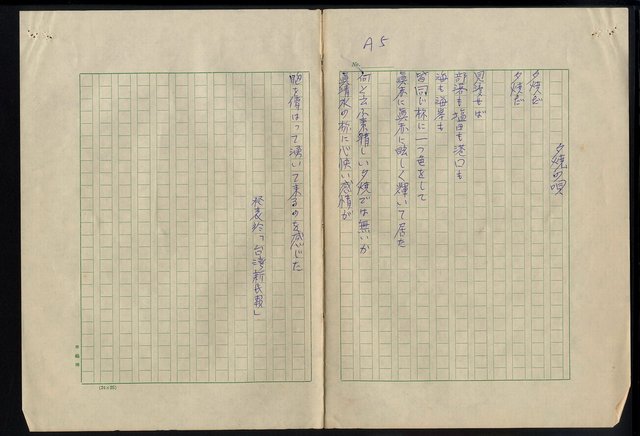 A5
No.
夕焼の唄
夕焼だ
夕焼だ
見渡せば
部落も塩田も港口も
海も海岸も
皆同じ様に一つ色をして
真赤に真赤に眩しく輝いて居た
何と云ふ素晴しい夕焼では無いか
真清水の様に心快い感情が
胸を傳はって湧いて来るのを感じた
発表於「台湾新民報」
(24×25)